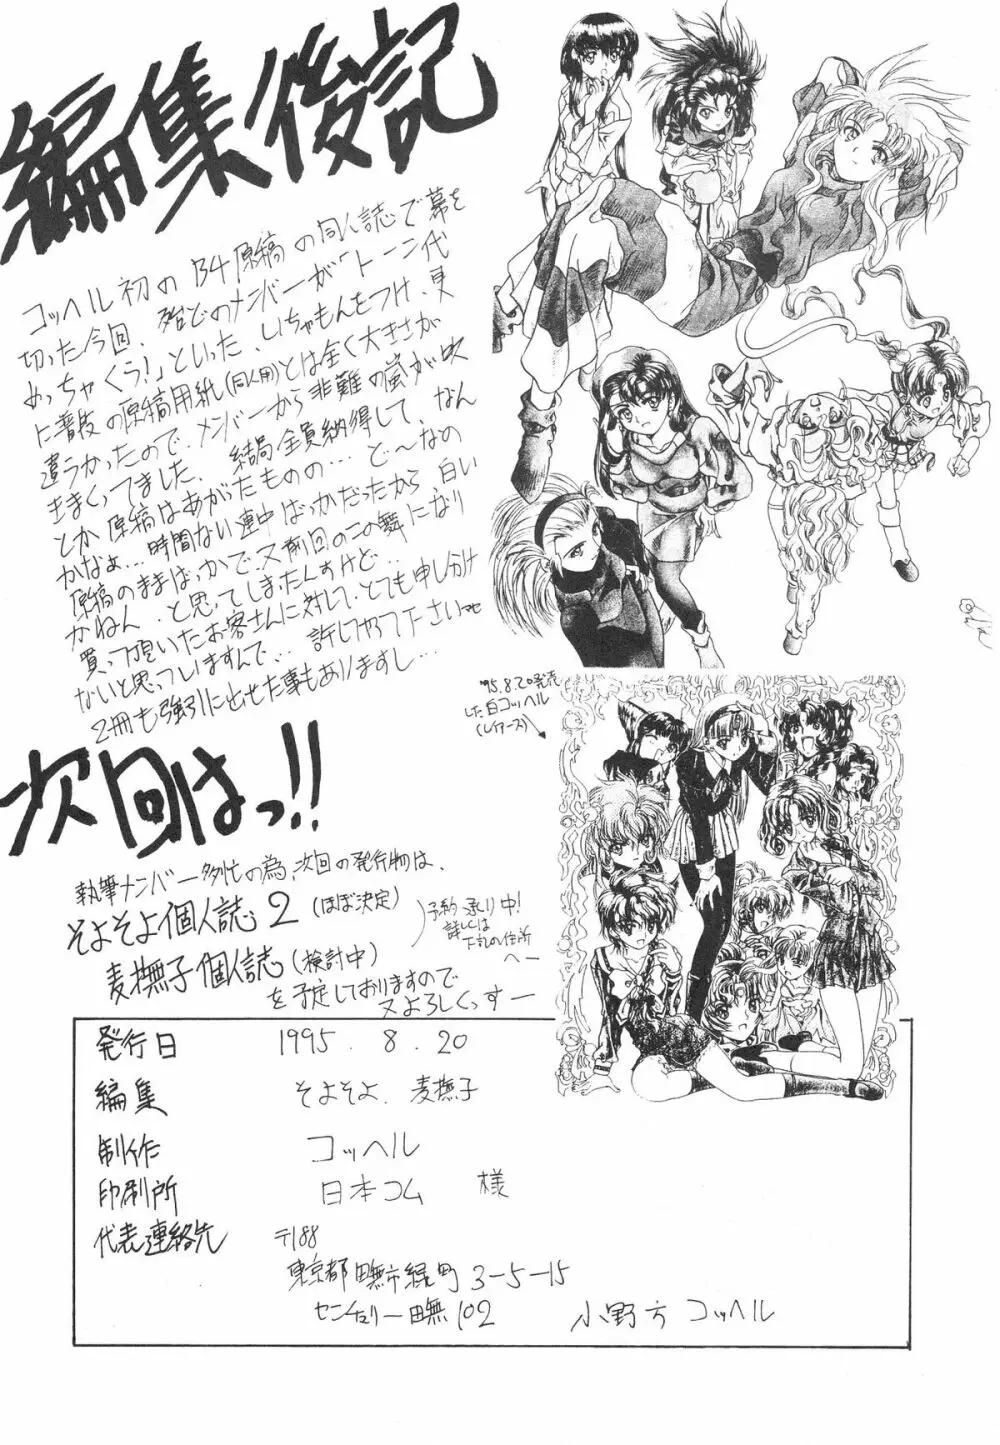 編集後記
コッヘル初のB4原稿の同人誌で幕を
切った今回、殆どのメンバーが「トーン代
めっちゃくう!」といった、いちゃもんをつけ、更
に普段の原稿用紙(同人用)とは全く大きさが
違うかったので、メンバーから非難の嵐が吹
きまくってました。結局全員納得して、なん
とか原稿はあがったものの…ど〜なの
かなぁ…時間ない連中ばっかだったから白い
原稿のままばっかで、又前回の二の舞になり
かねん、と思ってしまったんすけど…
買って頂いたお客さんに対して、とても申し分け
ないと思ってしますんで…許してやって下さいませ
2冊も強引に出せた事もありますし…
'95.8.20発売
した白コッヘル
(レイアース)
次回はっ!!
執筆メンバー多忙の為、次回の発行物は、
そよそよ個人誌2(ほぼ決定)
麦撫子個人誌(検討中)
予約承り中!
詳しくは
下記の住所
へー
を予定しておりますので
又よろしくっすー
発行日 1995.8.20
編集 そよそよ、麦撫子
制作 コッヘル
印刷所 日本コム 様
代表連絡先 〒188
東京都田無市緑町3-5-15
センチュリー田無102 小野方 コッヘル